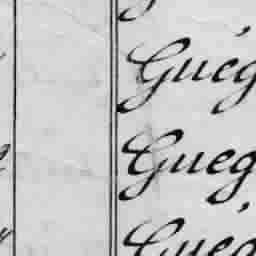 Guég
Gueg
Guég